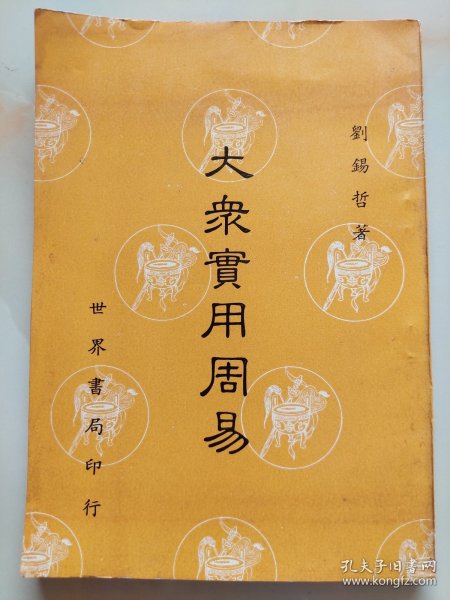 劉錫哲著
大衆實用周易
世界書局印行
孔夫子旧书网
www.kongfz.com